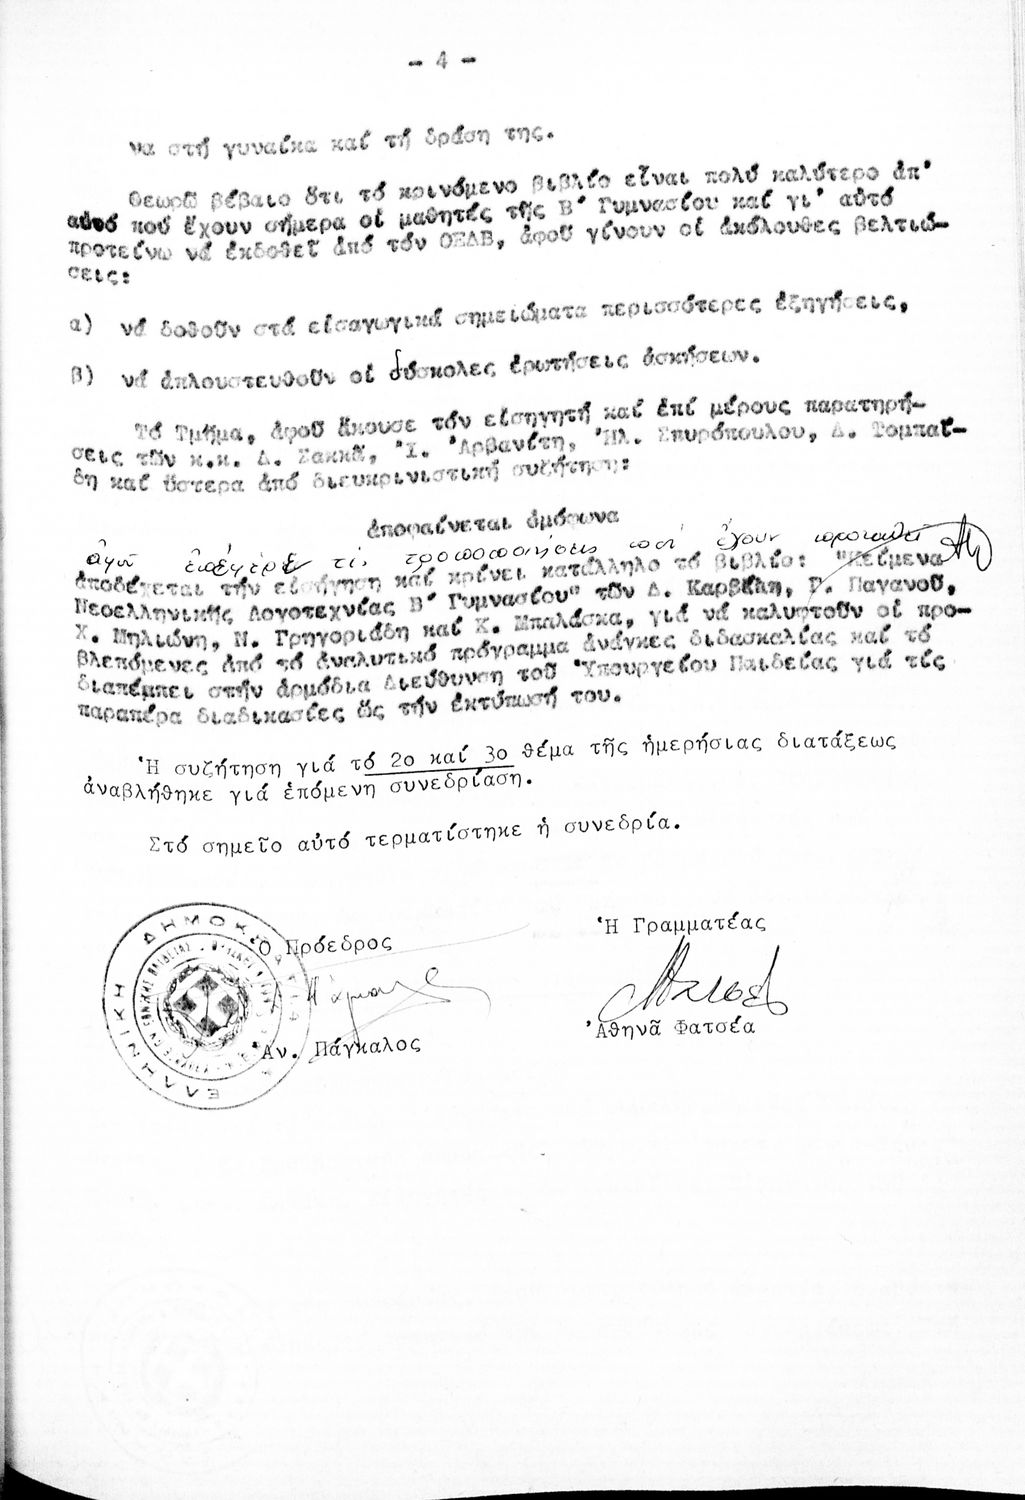 - 4 -
να στή γυναίκα καί τή δράση της.
Θεωρῶ βέβαιο ὅτι τό κρινόμενο βιβλίο εἶναι πολύ καλύτερο ἀπ'
αὐτό πού ἔχουν σήμερα οἱ μαθητές τῆς Β' Γυμνασίου καί γι' αὐτό
προτείνω νά ἐκδοθεῖ ἀπό τόν ΟΕΔΒ, ἀφοῦ γίνουν οἱ ἀκόλουθες βελτιώ-
σεις:
α) νά δοθοῦν στά εἰσαγωγικά σημειώματα περισσότερες ἐξηγήσεις,
β) νά ἁπλουστευθοῦν οἱ δύσκολες ἐρωτήσεις ἀσκήσεων.
Τό Τμῆμα, ἀφοῦ ἄκουσε τόν εἰσηγητή καί ἐπί μέρους παρατηρή-
σεις τῶν κ.κ. Δ. Σακκᾶ, Ἰ. Ἀρβανίτη, Ἡλ. Σπυρόπουλου, Δ. Τομπαΐ-
δη καί ὕστερα ἀπό διευκρινιστική συζήτηση:
ἀποφαίνεται ὁμόφωνα
ἀφοῦ ἐπέφερεν τίς τροποποιήσεις πού ἔχουν προταθεῖ
ἀποδέχεται τήν εἰσήγηση καί κρίνει κατάλληλο τό βιβλίο: "Κείμενα
Νεοελληνικῆς Λογοτεχνίας Β' Γυμνασίου" τῶν Δ. Καρβέλη, Γ. Παγανοῦ,
Χ. Μηλιώνη, Ν. Γρηγοριάδη καί Κ. Μπαλάσκα, γιά νά καλυφτοῦν οἱ προ-
βλεπόμενες ἀπό τό ἀναλυτικό πρόγραμμα ἀνάγκες διδασκαλίας καί τό
διαπέμπει στήν ἁρμόδια Διεύθυνση τοῦ Ὑπουργείου Παιδείας γιά τίς
παραπέρα διαδικασίες ὥς τήν ἐκτύπωσή του.
Ἡ συζήτηση γιά τό 2ο καί 3ο θέμα τῆς ἡμερήσιας διατάξεως
ἀναβλήθηκε γιά ἑπόμενη συνεδρίαση.
Στό σημεῖο αὐτό τερματίστηκε ἡ συνεδρία.
Ὁ Πρόεδρος
Ἡ Γραμματέας
Ἀν. Πάγκαλος
Ἀθηνᾶ Φατσέα
ΕΛΛΗΝΙΚΗ ΔΗΜΟΚΡΑΤΙΑ